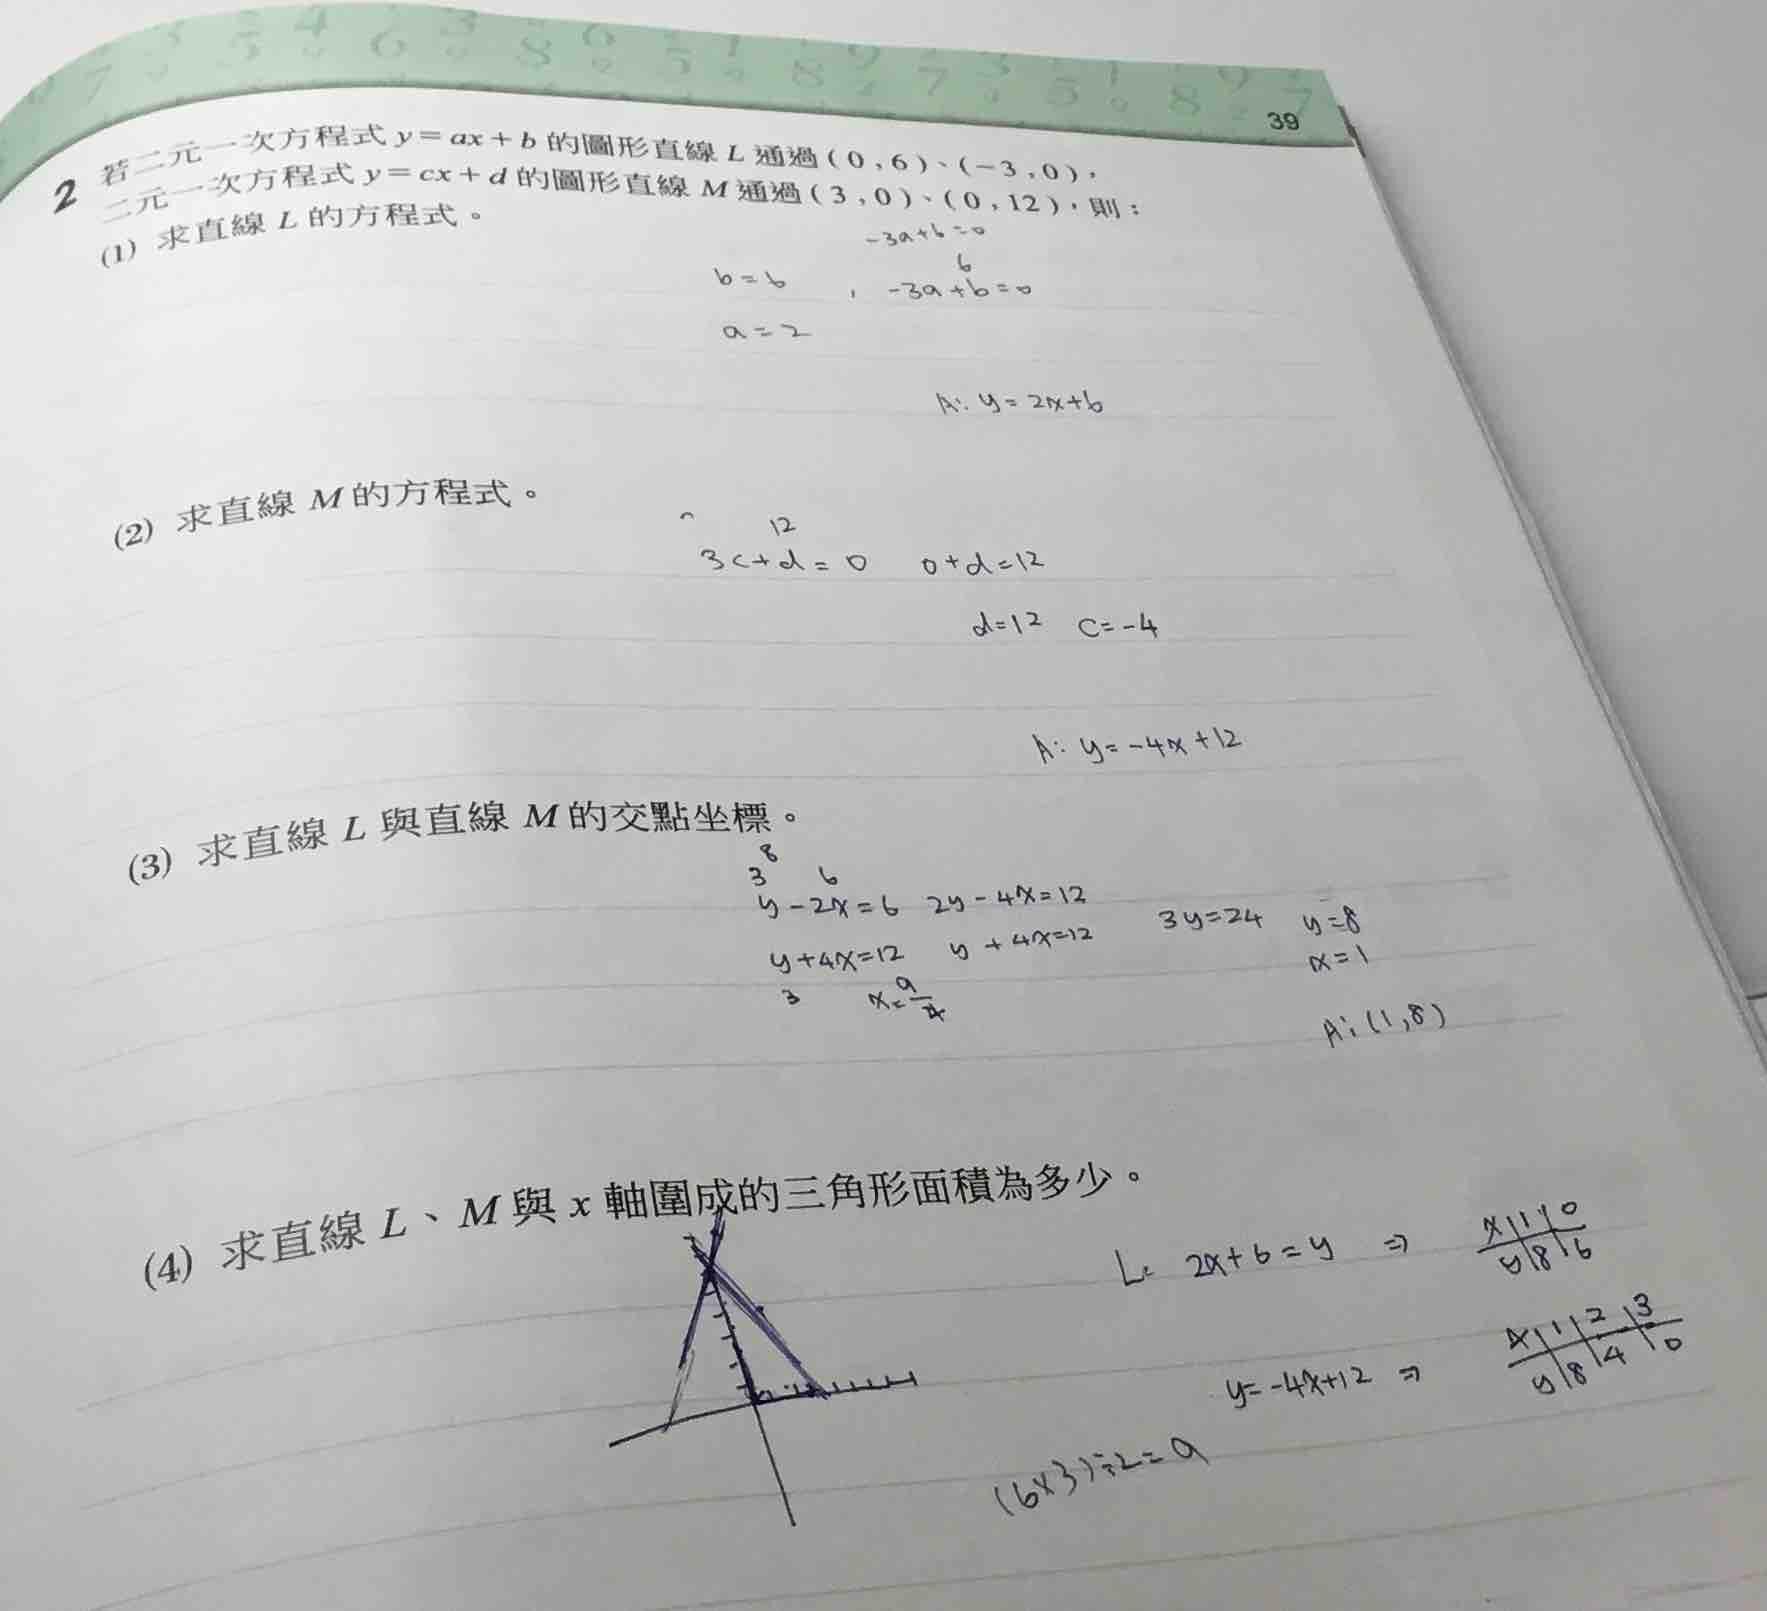 39
2 若二元一次方程式 y=ax+b 的圖形直線 L 通過(0,6)、(-3,0),
二元一次方程式 y=cx+d 的圖形直線 M 通過(3,0)、(0,12),則:
(1) 求直線 L 的方程式。
-3a+b=0
6
b=6 , -3a+b=0
a=2
A: y=2x+6
(2) 求直線 M 的方程式。
12
3c+d=0 0+d=12
d=12 c=-4
A: y=-4x+12
(3) 求直線 L 與直線 M 的交點坐標。
8
3 6
y-2x=6 2y-4x=12
y+4x=12 y+4x=12 3y=24 y=8
3 x=9/4 x=1
A:(1,8)
(4) 求直線 L、M 與 x 軸圍成的三角形面積為多少。
L: 2x+6=y ⇒ x|1|0
y|8|6
y=-4x+12 ⇒ x|1|2|3
y|8|4|0
(6×3)÷2=9